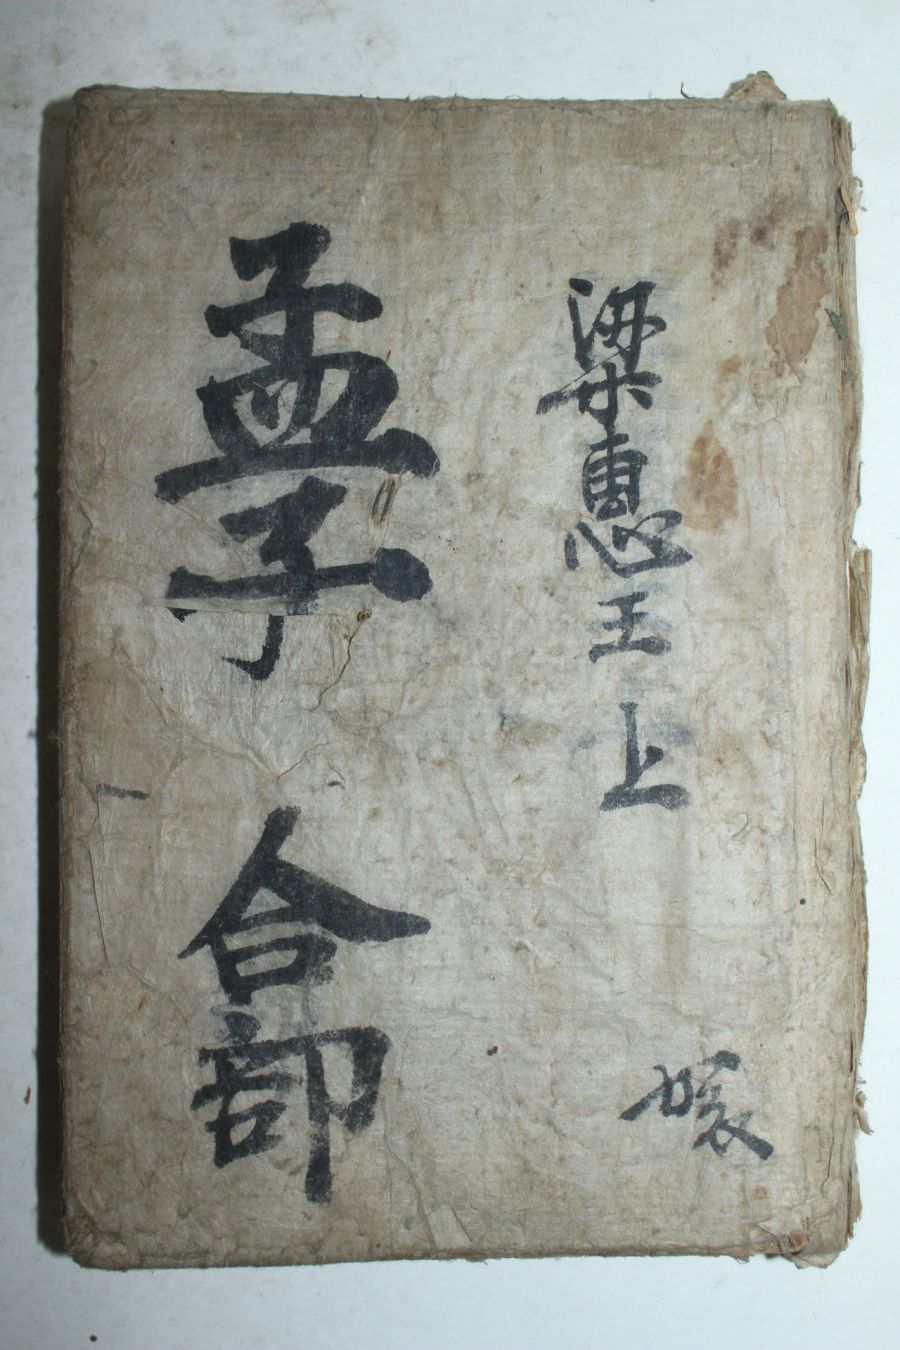 梁惠王上
孟子 合部